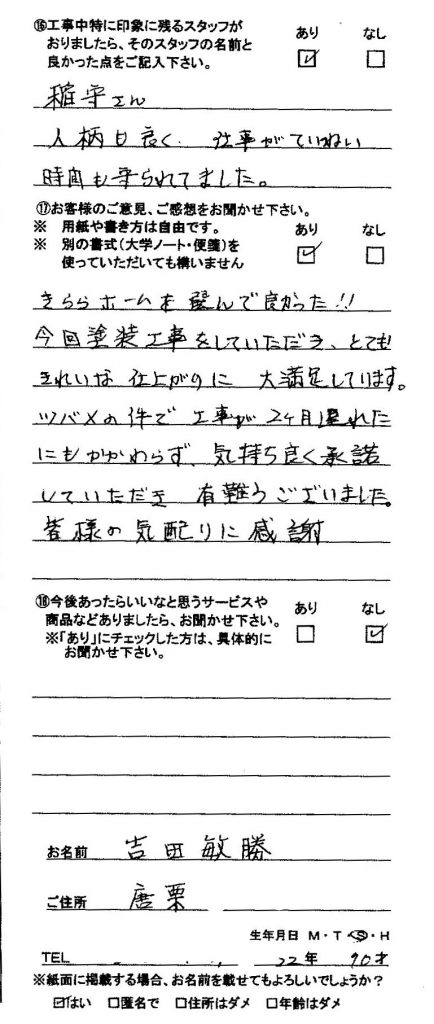 ⑯工事中特に印象に残るスタッフが
おりましたら、そのスタッフの名前と
良かった点をご記入下さい。
あり なし
☑ □
稲守さん
人柄も良く、仕事がていねい
時間も守られてました。
⑰お客様のご意見、ご感想をお聞かせ下さい。
※ 用紙や書き方は自由です。
※ 別の書式(大学ノート・便箋)を
使っていただいても構いません
あり なし
☑ □
きららホームを選んで良かった!!
今回塗装工事をしていただき、とても
きれいな仕上がりに 大満足しています。
ツバメの件で 工事が 2ヶ月遅れた
にもかかわらず、気持ち良く承諾
していただき 有難うございました。
皆様の気配りに感謝
⑱今後あったらいいなと思うサービスや
商品などありましたら、お聞かせ下さい。
※「あり」にチェックした方は、具体的に
お聞かせ下さい。
あり なし
□ ☑
お名前 吉田敏勝
ご住所 唐栗
生年月日 M・T・S・H
TEL 22年 70才
※紙面に掲載する場合、お名前を載せてもよろしいでしょうか?
☑はい □匿名で □住所はダメ □年齢はダメ